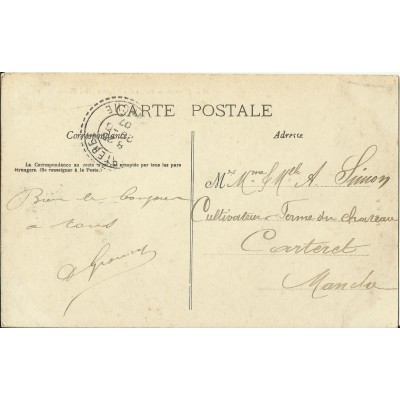 CARTE POSTALE
Correspondance
Adresse
La Correspondance au recto n'est pas acceptée par tous les pays
étrangers. (Se renseigner à la Poste.)
07
8
Bien le bonjour
à tous
Mr Mme & Mlle A. Simon
Cultivateur Ferme du chateau
Carteret
Manche